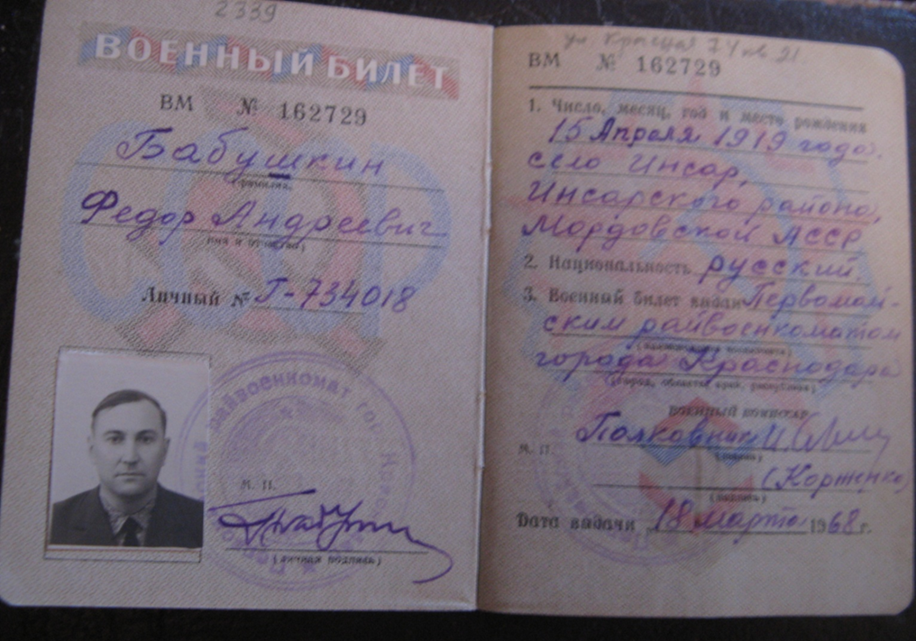 2339
ВОЕННЫЙ БИЛЕТ
ВМ № 162729
Бабушкин
(фамилия)
Федор Андреевич
(имя и отчество)
Личный № Г-734018
М. П.
(личная подпись)
райвоенкомат гор.
ул. Красная 74 кв 21.
ВМ № 162729
1. Число, месяц, год и место рождения
15 Апреля 1919 года.
село Инсар,
Инсарского района,
Мордовской АССР
2. Национальность русский.
3. Военный билет выдан Первомай-
ским райвоенкоматом
города Краснодара
(город, область, край, республика)
ВОЕННЫЙ КОМИССАР
Полковник
М. П.
(Корженко)
(подпись)
Дата выдачи 18 марта 1968 г.